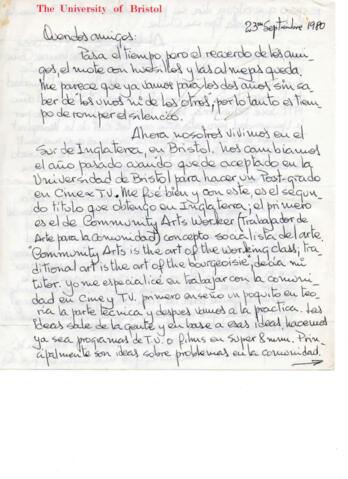 The University of Bristol
23 Septiembre 1980
Queridos amigos:
Pasa el tiempo, pero el recuerdo de los ami-
gos, el mote con huesillos y las almejas queda.
Me parece que ya vamos para los dos años, sin sa-
ber de los unos ni de los otros, por lo tanto es tiem-
po de romper el silencio.
Ahora nosotros vivimos en el
Sur de Inglaterra, en Bristol. Nos cambiamos
el año pasado cuando quede aceptado en la
Universidad de Bristol para hacer un Post-grado
en Cine x TV. Me fue bien y con este, es el segun-
do titulo que obtengo en Inglaterra; el primero
es el de Community Arts Worker (Trabajador de
Arte para la comunidad) concepto socialista del arte
"Community Arts is the art of the working class; tra-
ditional art is the art of the bourgeoisie", decía mi
tutor. Yo me especialicé en trabajar con la comuni-
dad en Cine y T.V. primero enseño un poquito en teo-
ría la parte técnica y despues vamos a la practica. Las
Ideas sale de la gente y en base a esas ideas, hacemos
ya sea programas de T.V. o films en Super 8 mm. Prin-
cipalmente son ideas sobre problemas en la comunidad.